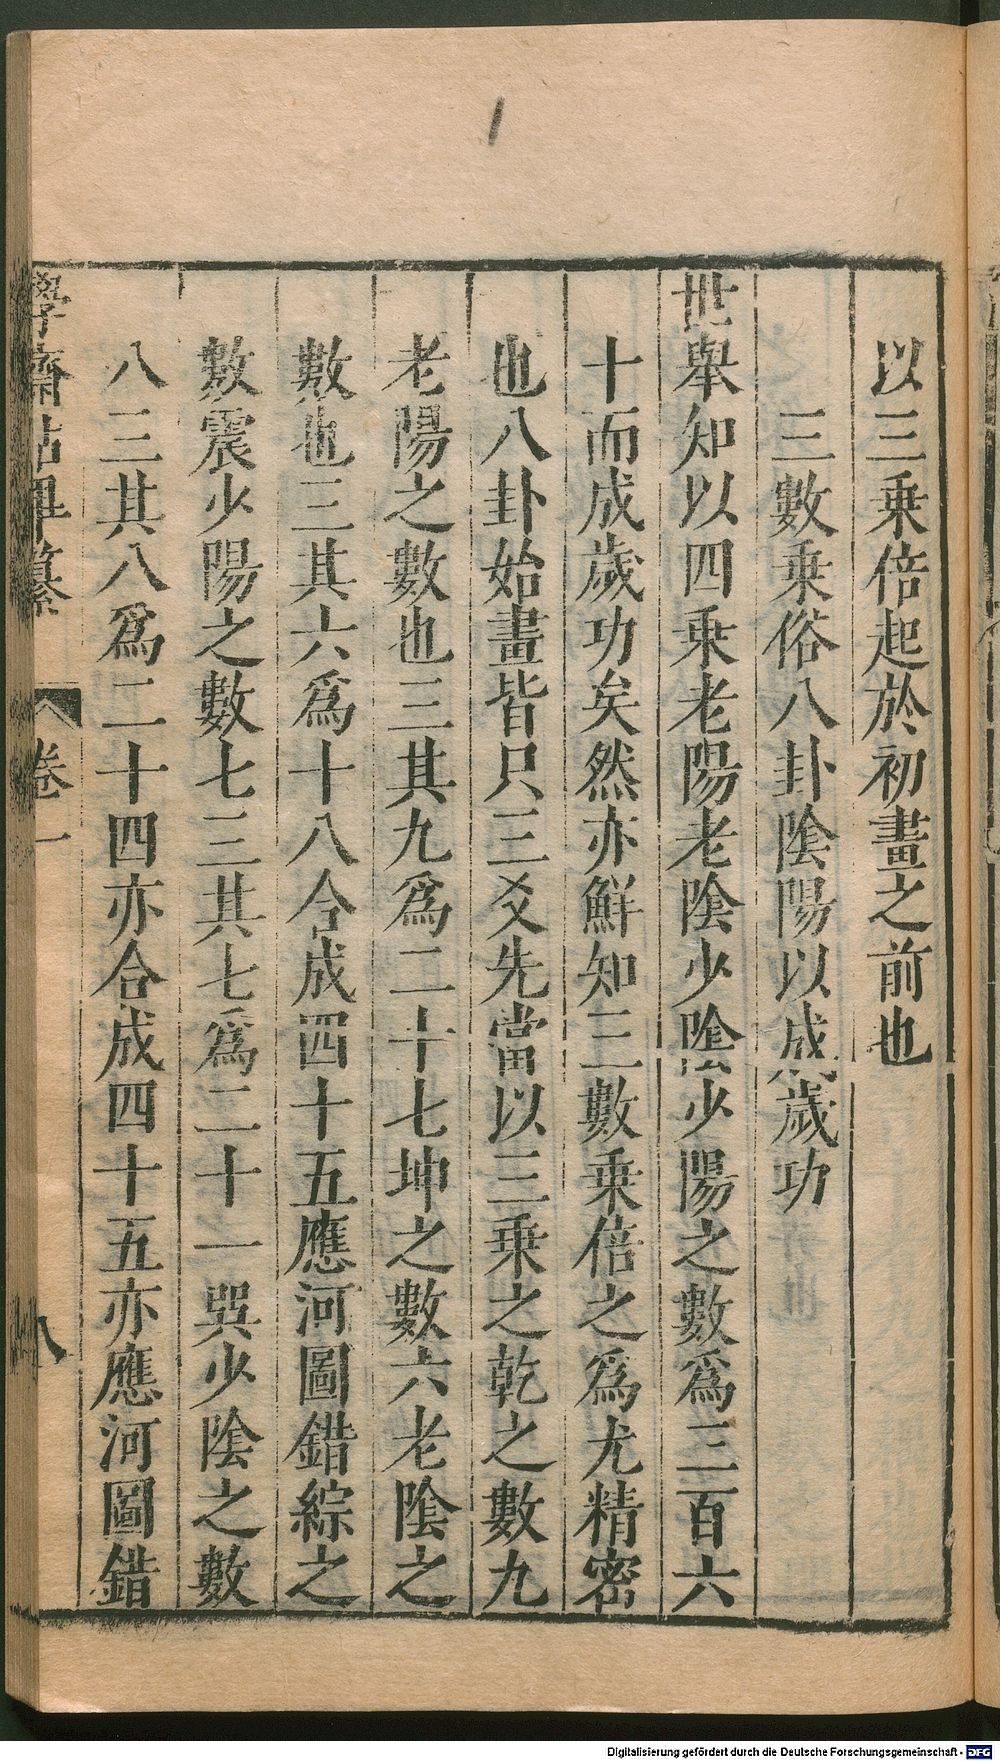 以三乗倍起於初畫之前也
三數乗俗八卦陰陽以成歲功
世舉知以四乗老陽老陰少陰少陽之數爲三百六
十而成歲功矣然亦鮮知三數乗倍之爲尤精密
也八卦始畫皆只三爻先當以三乗之乾之數九
老陽之數也三其九爲二十七坤之數六老陰之
數也三其六爲十八合成四十五應河圖錯綜之
數震少陽之數七三其七爲二十一巽少陰之數
八三其八爲二十四亦合成四十五亦應河圖錯
學齋佔畢纂 卷一 八
Digitalisierung gefördert durch die Deutsche Forschungsgemeinschaft - DFG